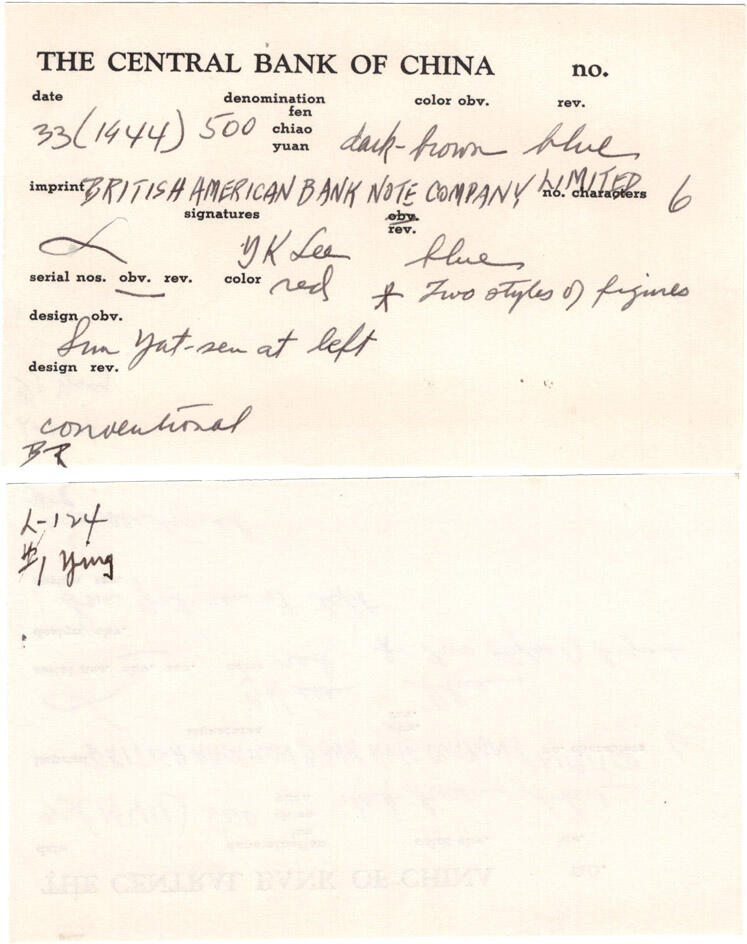 THE CENTRAL BANK OF CHINA no.
date denomination color obv. rev.
fen
33 (1944) 500 chiao dark-brown blue
yuan
imprint BRITISH AMERICAN BANK NOTE COMPANY LIMITED no. characters 6
signatures obv.
rev.
YK Lee blue
serial nos. obv. rev. color red * Two styles of figures
design obv.
Sun Yat-sen at left
design rev.
conventional
BR
L-124
#1 Ying